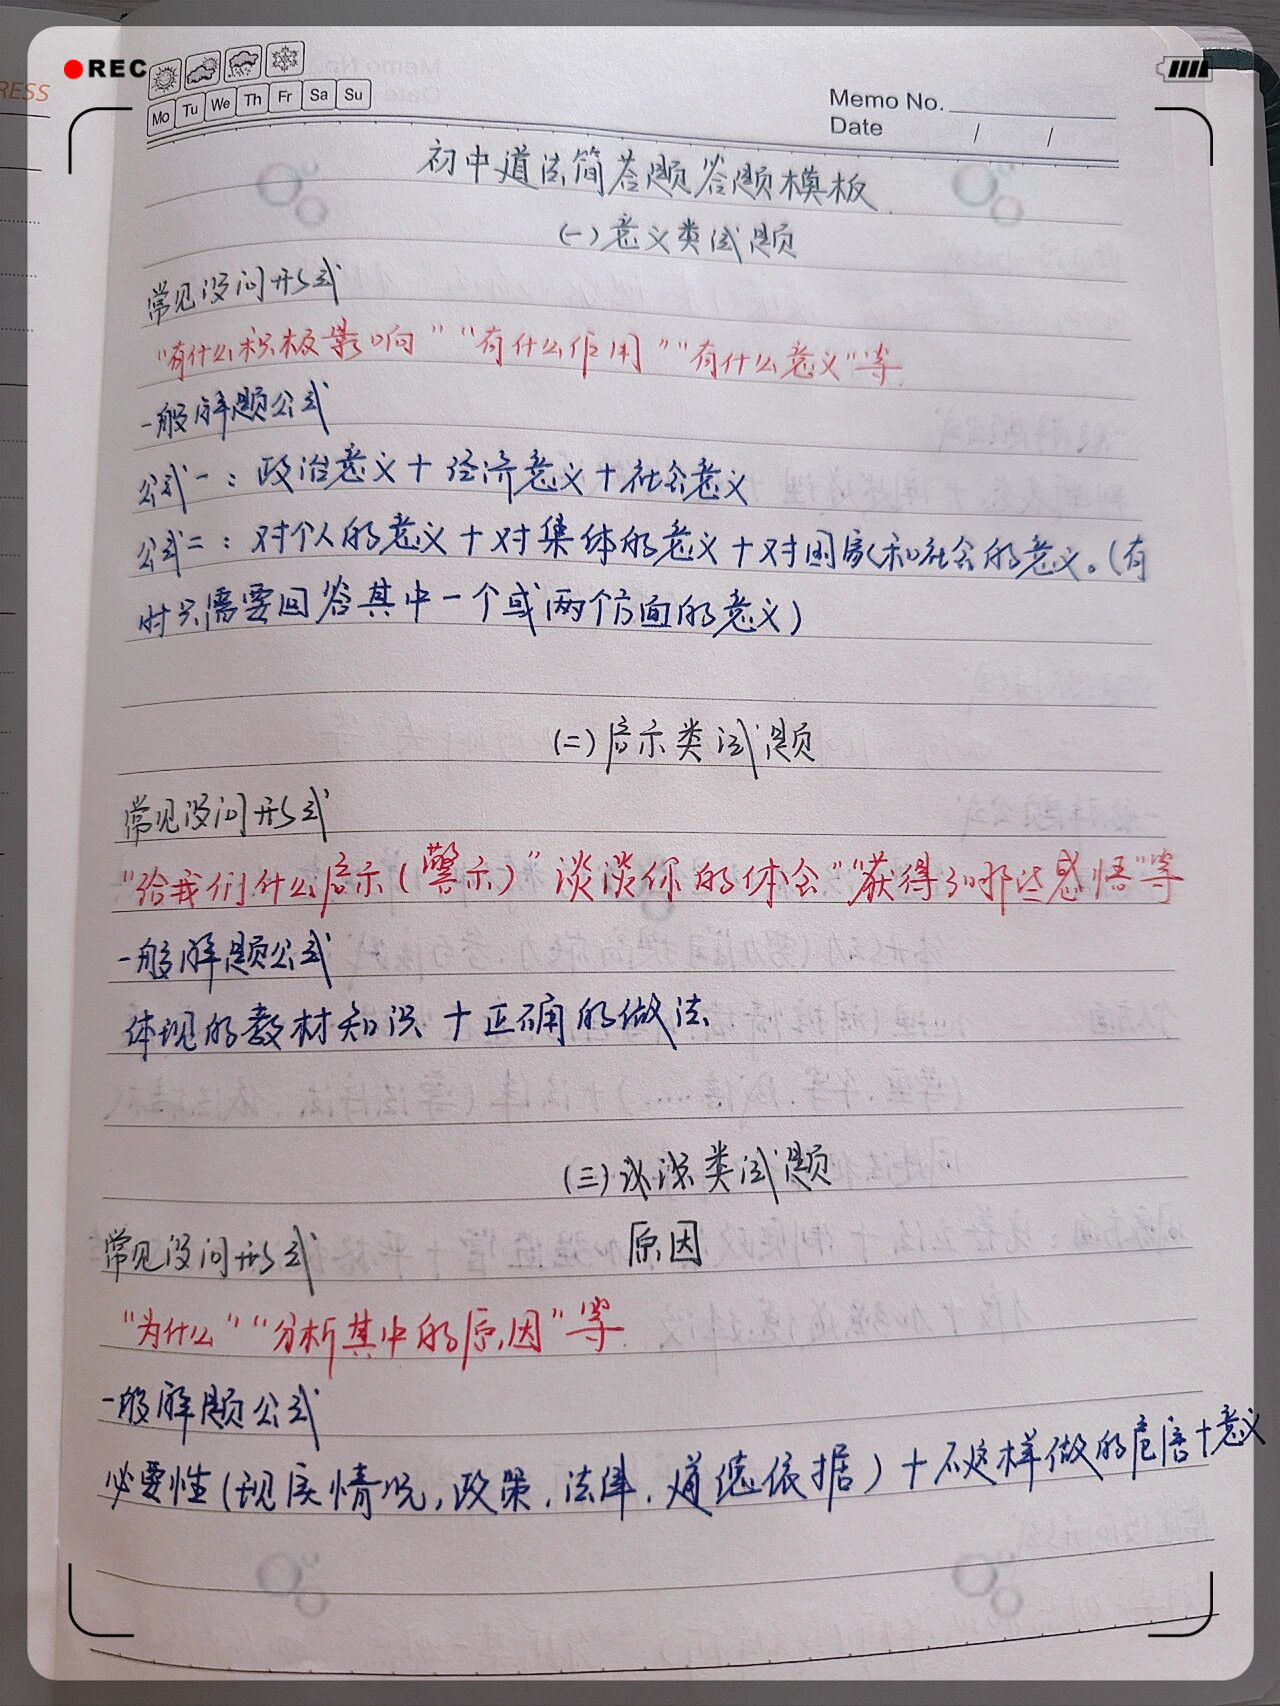 REC
RESS
Mo Tu We Th Fr Sa Su
Memo No.
Date / /
初中道法简答题答题模板
(一)意义类试题
常见设问形式
“有什么积极影响”“有什么作用”“有什么意义”等
一般解题公式
公式一：政治意义+经济意义+社会意义
公式二：对个人的意义+对集体的意义+对国家和社会的意义。(有
时只需要回答其中一个或两个方面的意义)
(二)启示类试题
常见设问形式
“给我们什么启示(警示)”谈谈你的体会”“获得了哪些感悟”等
一般解题公式
体现的教材知识+正确的做法
(三)类试题
原因
常见设问形式
“为什么”“分析其中的原因”等
一般解题公式
必要性(现实情况,政策,法律,道德依据)+不这样做的危害+意义